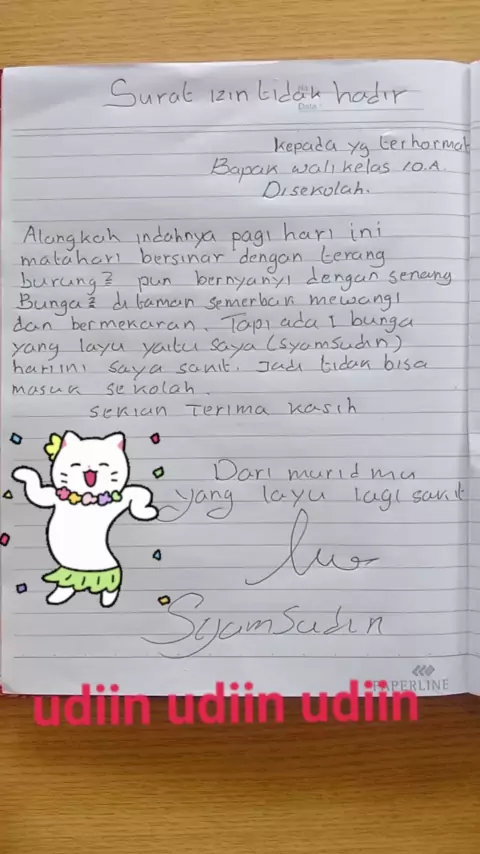 Surat izin tidak hadir
No
Date
Kepada yg terhormat
Bapak wali kelas 10.A.
Disekolah.
Alangkah indahnya pagi hari ini
matahari bersinar dengan terang
burung2 pun bernyanyi dengan senang
Bunga2 di taman semerbak mewangi
dan bermekaran. Tapi ada 1 bunga
yang layu yaitu saya (syamsudin)
hari ini saya sakit. Jadi tidak bisa
masuk sekolah.
sekian Terima kasih
Dari muridmu
yang layu lagi sakit
Syamsudin
PAPERLINE
udiin udiin udiin